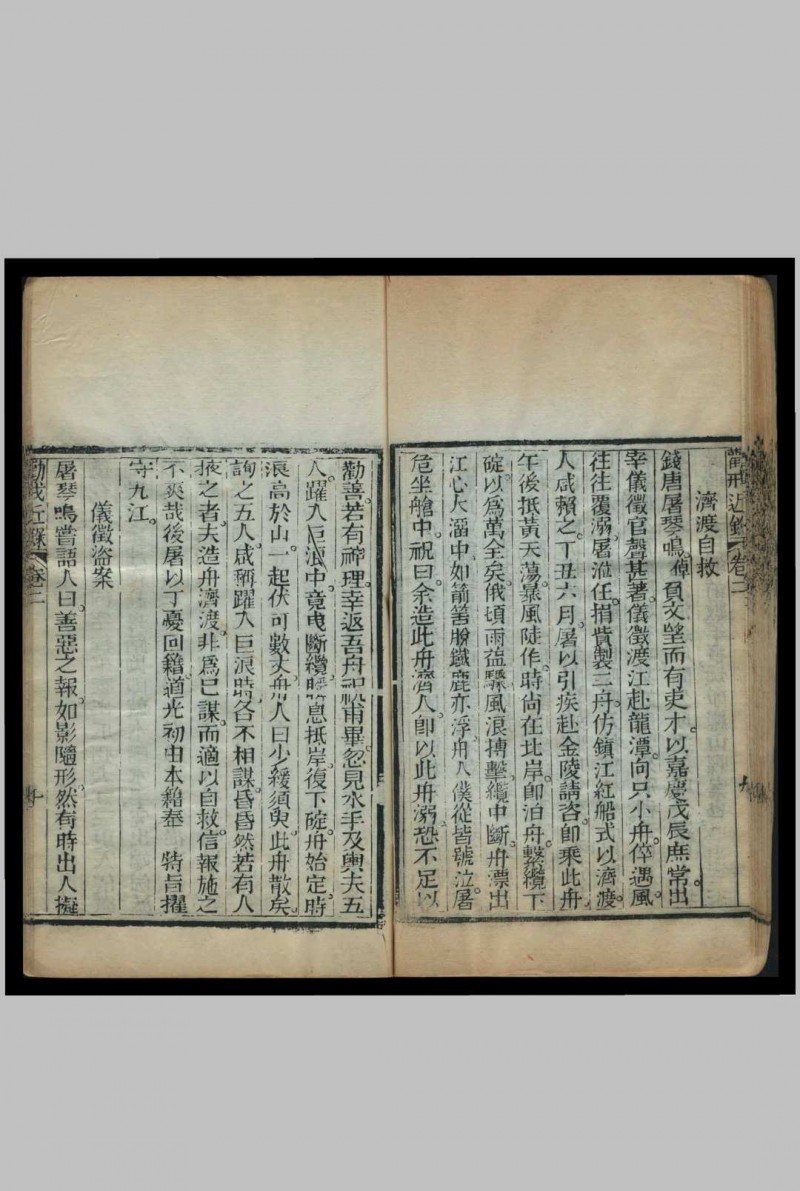 勸戒近錄 卷二 九
濟渡自救
錢唐屠琴鳴。倬負文望而有吏才。以嘉慶戊辰庶常出
宰儀徵官聲甚著。儀徵渡江赴龍潭。向只小舟。倅遇風。
往往覆溺。屠涖任捐貲製三舟。仿鎮江紅船式以濟渡。
人咸賴之。丁丑六月。屠以引疾赴金陵請咨。即乘此舟。
午後抵黃天蕩。暴風陡作。時尚在北岸。即泊舟繫纜下
碇。以爲萬全矣。俄頃雨益驟。風浪搏擊。纜中斷。舟漂出
江心大溜中。如箭筈脫。鐵鹿亦浮。舟人僕從皆號泣。屠
危坐艙中。祝曰。余造此舟濟人。即以此舟溺。恐不足以
勸善。若有神理。幸返吾舟。祝甫畢。忽見水手及輿夫五
人。躍入巨浪中。竟曳斷纜。瞬息抵岸。復下碇。舟始定。時
浪高於山。一起伏可數丈。舟人曰。少緩須臾。此舟散矣。
詢之五人。咸稱躍入巨浪時。各不相謀。昏昏然若有人
掖之者。夫造舟濟渡。非爲己謀。而適以自救。信報施之
不爽哉。後屠以丁憂回籍。道光初由本籍奉 特旨擢
守九江。
儀徵盜案
屠琴鳴嘗語人曰。善惡之報。如影隨形。然有時出人擬
勸戒近錄 卷二